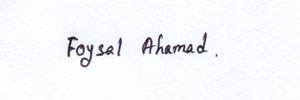 Foysal Ahamad.